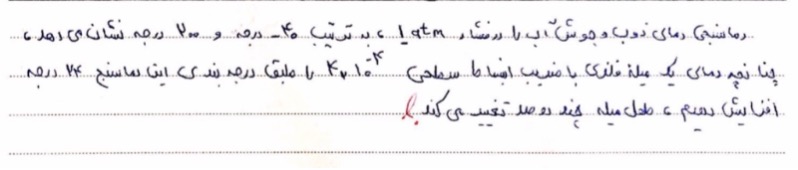 دماسنجی دمای ذوب و جوش آب را در فشار 1atm ، به ترتیب ۴۰- درجه و ۲۰۰ درجه نشان می دهد ،
چنانچه دمای یک میلهٔ فلزی با ضریب انبساط سطحی ۴×۱۰^-۴ را طبق درجه بندی این دماسنج ۲۴ درجه
افزایش دهیم ، طول میله چند درصد تغییر می کند؟